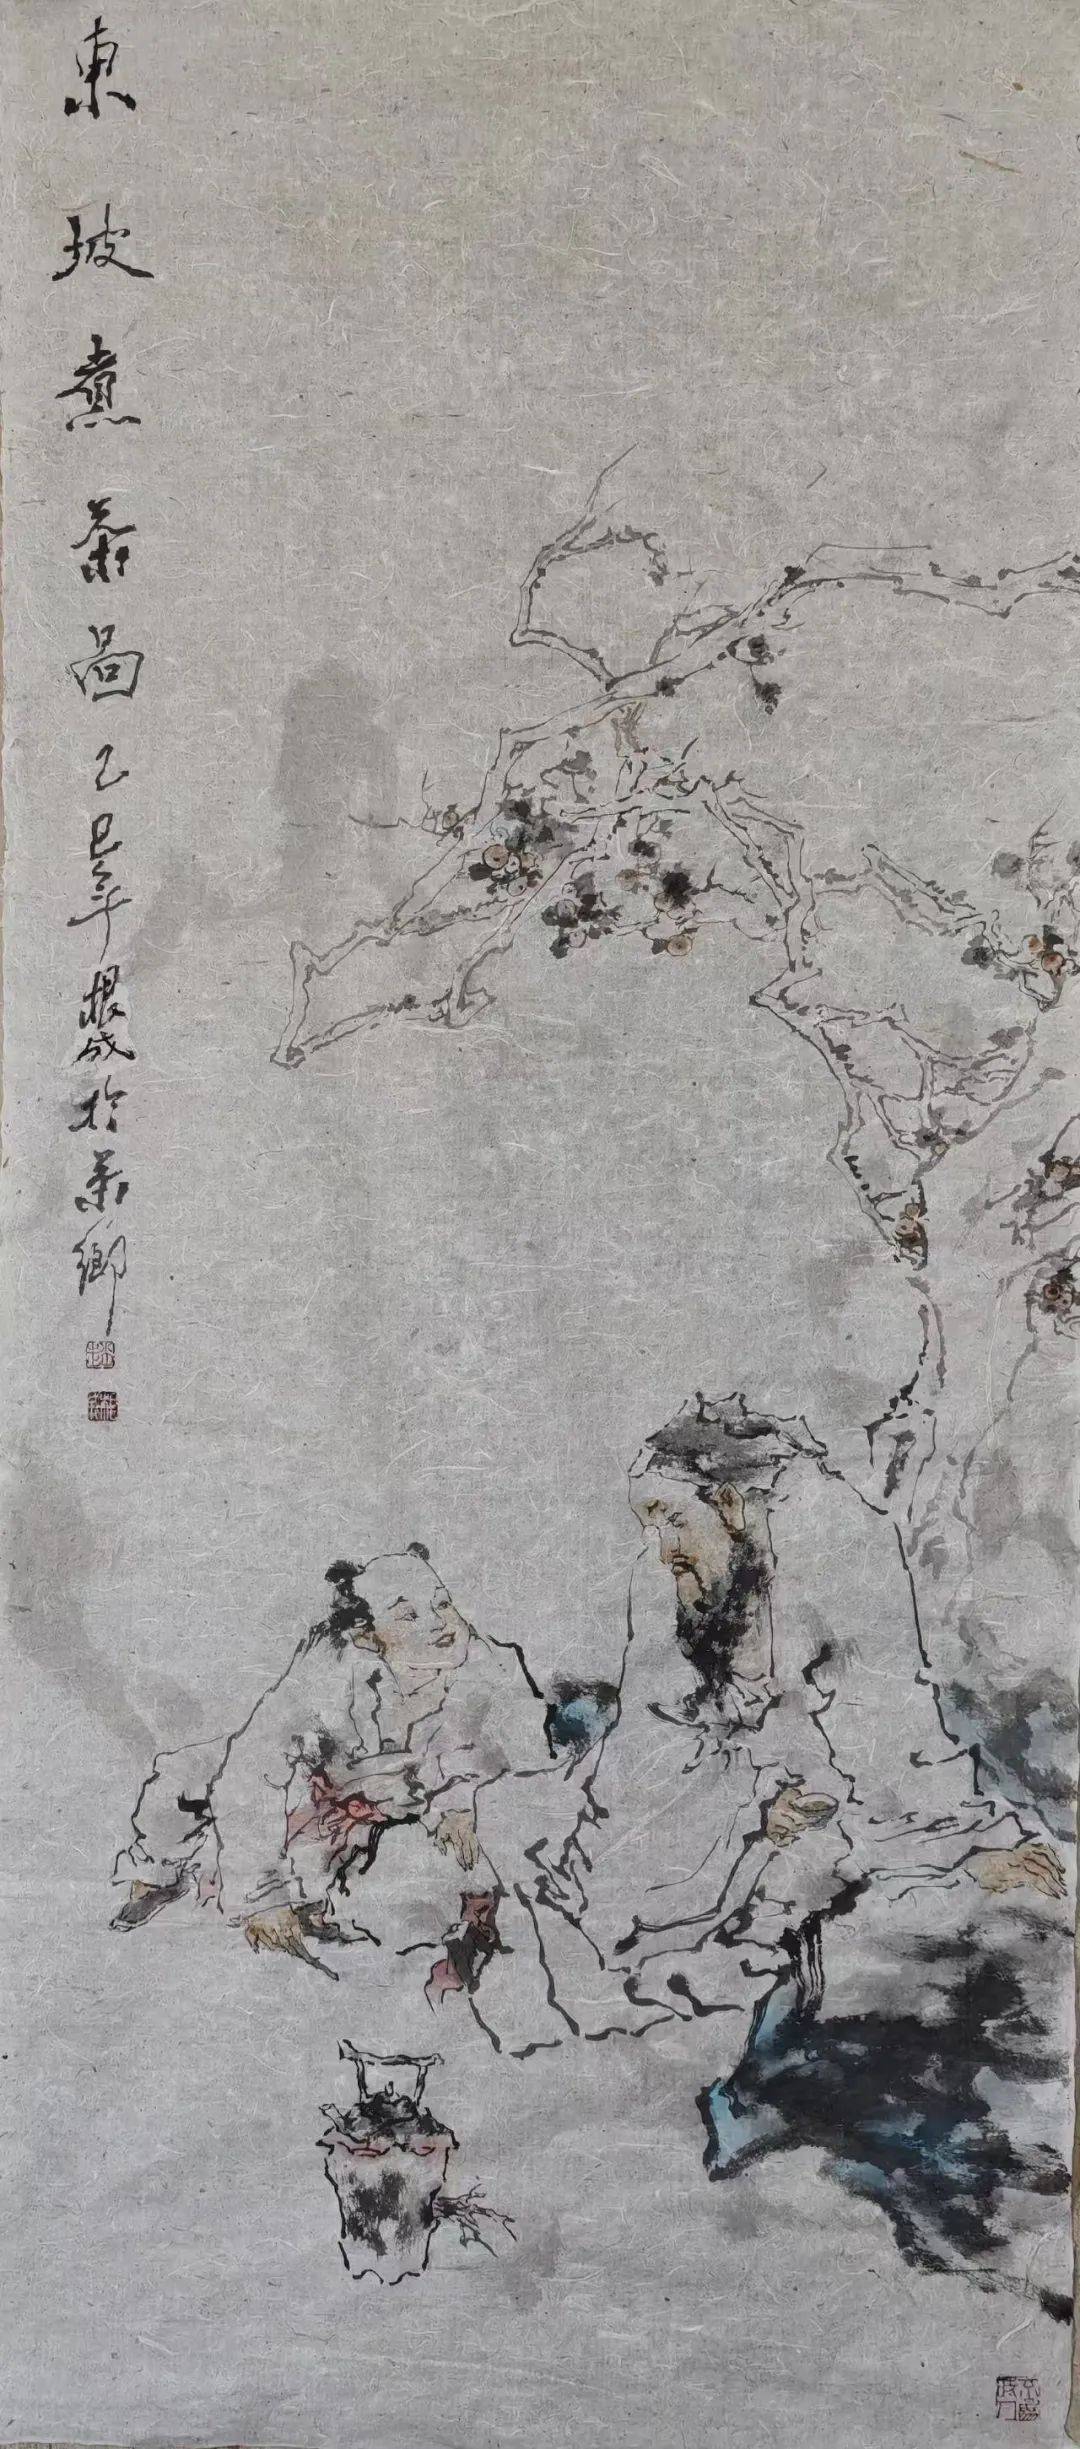 東坡煮茶圖乙巳年根成於茶鄉